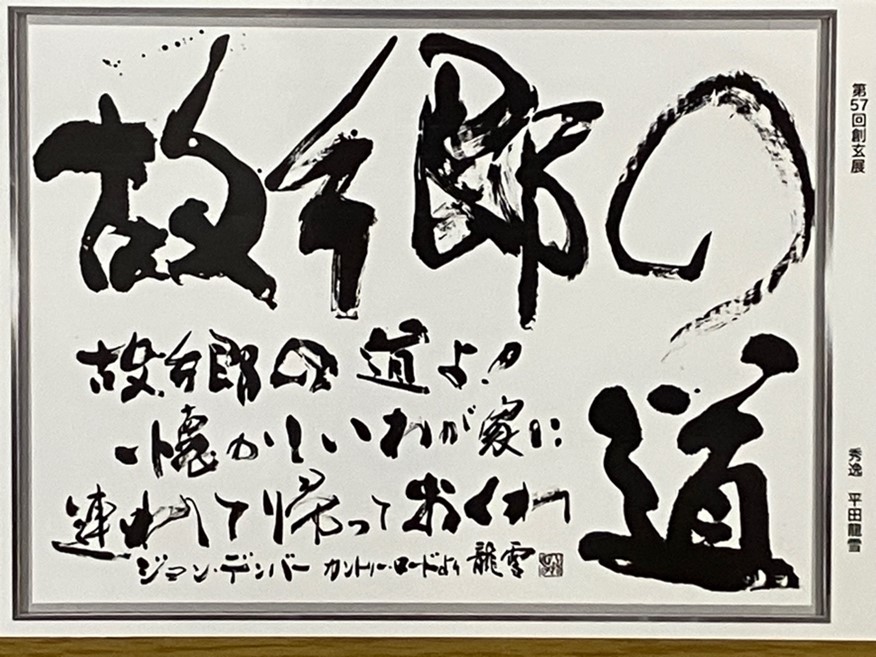 故郷の
道
故郷の道よ!
懐かしいわが家に
連れて帰っておくれ
ジョン・デンバー カントリー・ロードより 龍雪
第57回創玄展
秀逸 平田龍雪